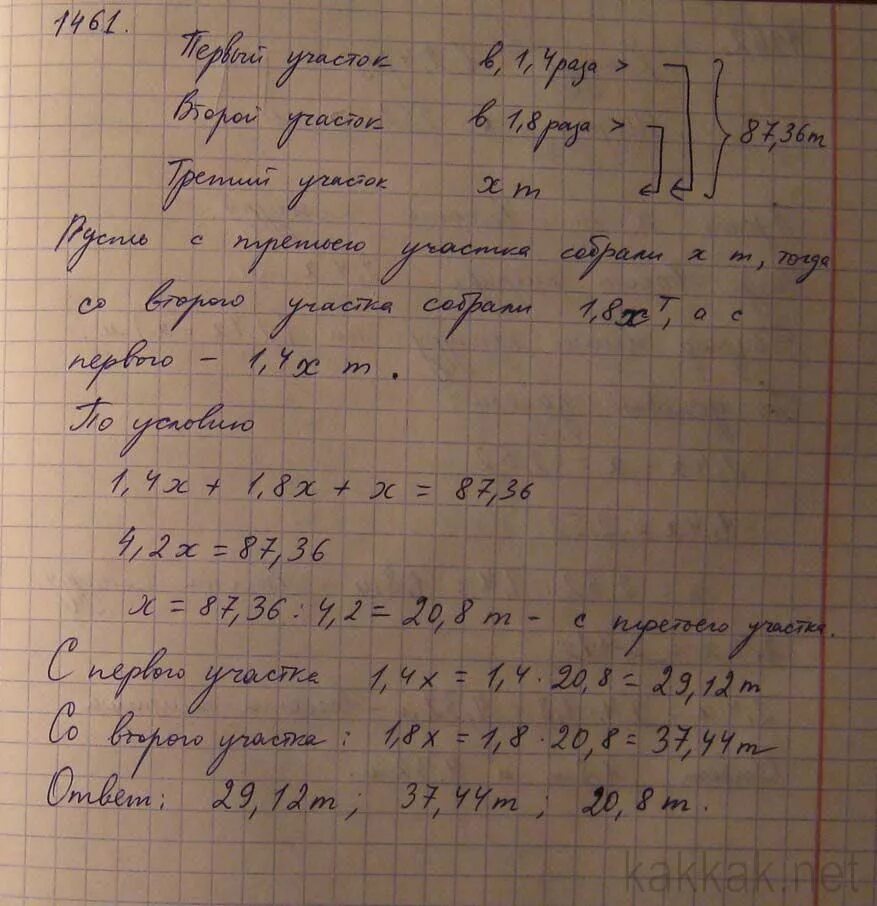 1461.
Первый участок в 1,4 раза >
Второй участок в 1,8 раза > 87,36 т
Третий участок х т
Пусть с третьего участка собрали х т, тогда
со второго участка собрали 1,8х т, а с
первого – 1,4х т.
По условию
1,4х + 1,8х + х = 87,36
4,2х = 87,36
х = 87,36 : 4,2 = 20,8 т – с третьего участка.
С первого участка 1,4х = 1,4 · 20,8 = 29,12 т
Со второго участка: 1,8х = 1,8 · 20,8 = 37,44 т
Ответ: 29,12 т; 37,44 т; 20,8 т.
kakkak.net